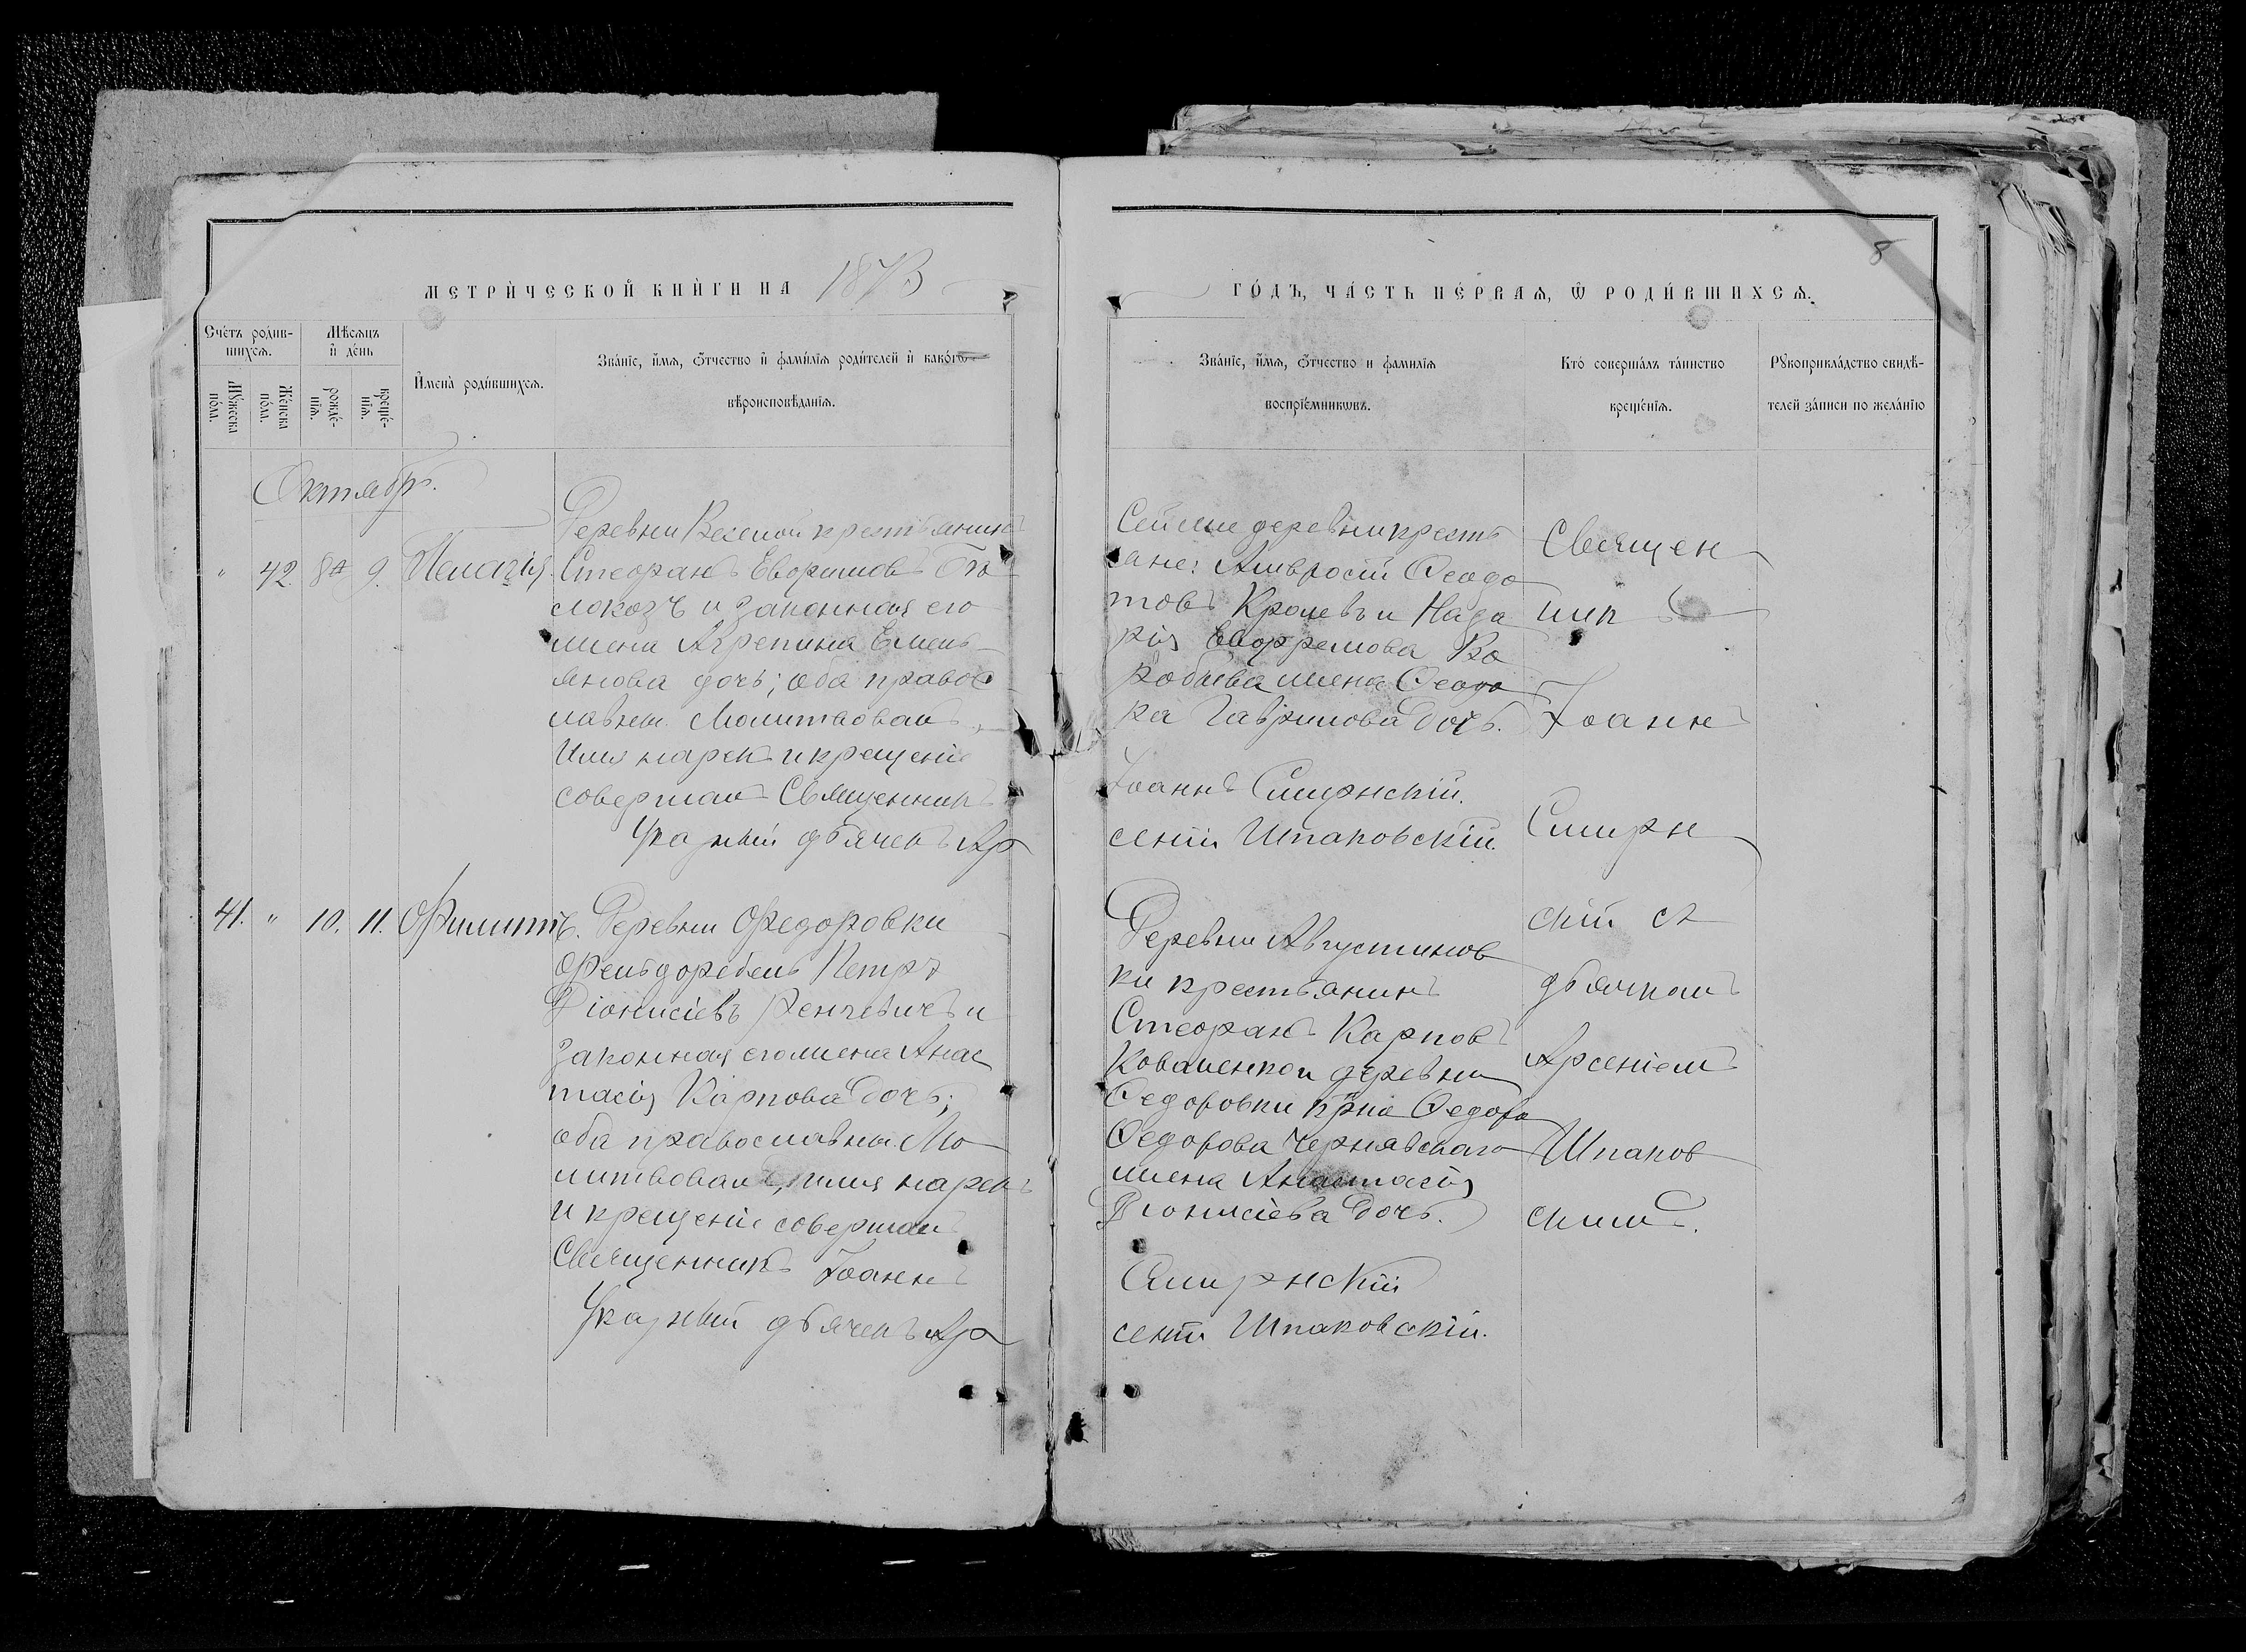 8
МЕТРИ́ЧЕСКОЙ КНИ́ГИ НА 1873
ГО́ДЪ, ЧА́СТЬ ПЕ́РВАЯ, Ѿ РОДИ́ВШИХСЯ.
Сче́тъ роди́в-
шихся.
Мѣ́сяцъ
и҆ де́нь
Мꙋ́жеска
по́ла.
Же́нска
по́ла.
рожде́-
нїя.
креще́-
нїя.
И҆мена̀ роди́вшихся.
Зва́нїе, и҆́мя, ѻ҆́тчество и҆ фами́лїя роди́телей и҆ како́гѡ
вѣроисповѣ́данїя.
Зва́нїе, и҆́мя, ѻ҆́тчество и фами́лїя
воспрїе́мникѡвъ.
Кто́ соверша́лъ та́инство
креще́нїя.
Рꙋкоприкла́дство свидѣ́-
телей за́писи по жела́нїю
Октябрь.
" 42. 8 9. Пелагія.
Деревни Веселой крестьянинъ
Стефанъ Евфимовъ Бѣ
локозъ и законная его
жена Агрепина Емель
янова дочь; оба правос
лавны. Молитвовалъ,
Имя нарекъ и крещеніе
совершалъ Священникъ
Указный дьячекъ Ар
Сей же деревни кресть
яне: Амвросій Феодо
товъ Кролевъ и Наза
рія Евфремова Во
робьева жена Феодо
ра Гаврилова дочь.
Іоаннъ Смирнскій.
сеній Шпаковскій.
Священ
никъ
Іоаннъ
Смирн
скій съ
дьячкомъ
Арсеніемъ
Шпаков
скимъ.
41. " 10. 11. Филиппъ.
Деревни Федоровки
Фельдфебель Петръ
Діонисіевъ Венчевичъ и
законная его жена Анас
тасія Карпова дочь;
оба православны. Мо
литвовалъ, имя нарекъ
и крещеніе совершалъ
Священникъ Іоаннъ
Указный дьячекъ Ар
Деревни Августинов
ки крестьянинъ
Стефанъ Карповъ
Коваленко и деревни
Федоровки крна Федора
Федорова Чернявскаго
жена Анастасія
Діонисіева дочь.
Смирнскій
сеній Шпаковскій.